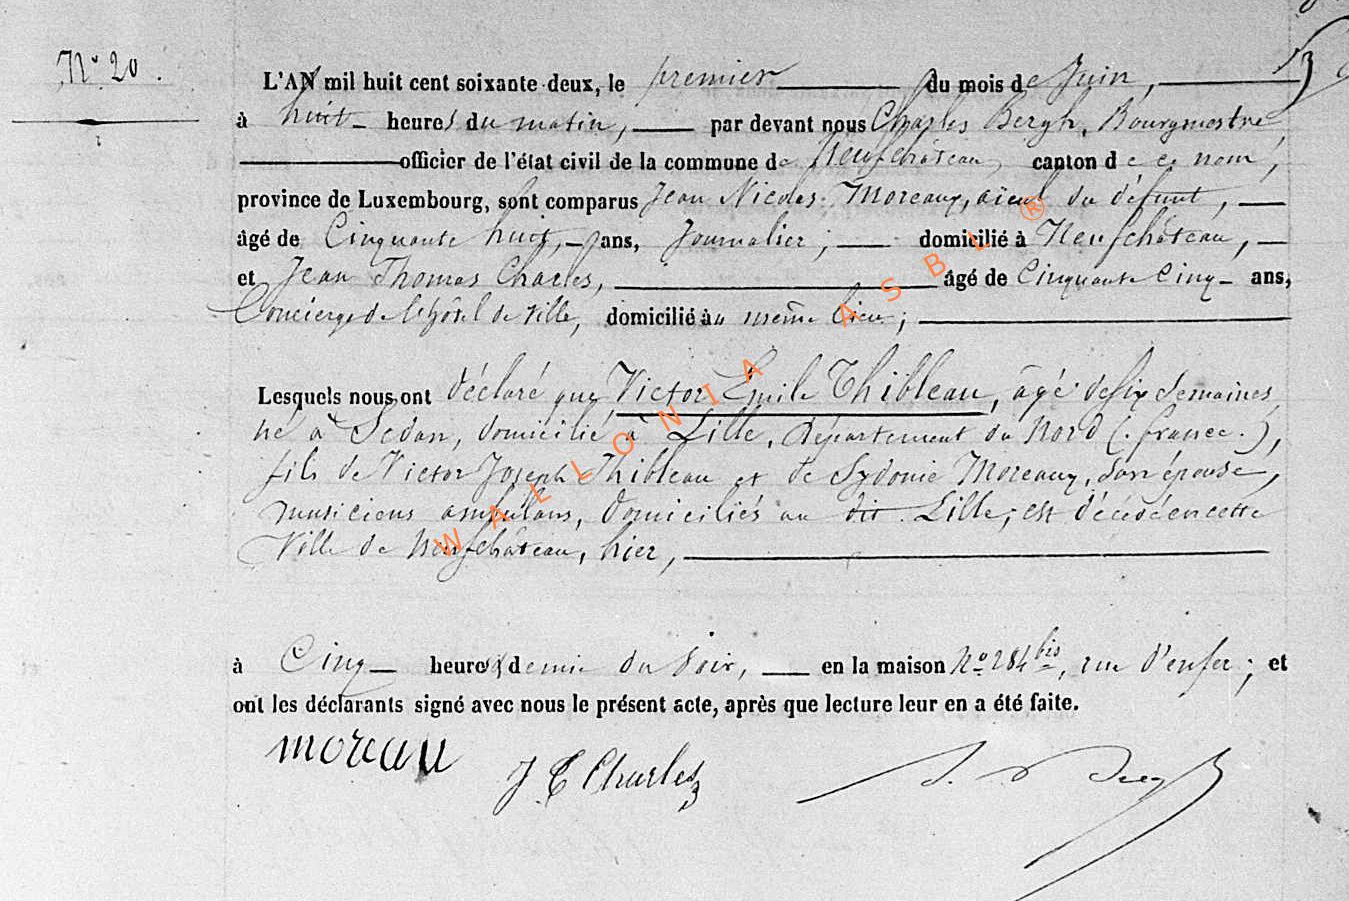 N° 20.
L'AN mil huit cent soixante deux, le premier du mois de Juin,
à huit heures du matin, par devant nous Charles Bergh, Bourgmestre
officier de l'état civil de la commune de Neufchâteau, canton de ce nom,
province de Luxembourg, sont comparus Jean Nicolas Moreaux, aïeul du défunt,
âgé de Cinquante huit, ans, Journalier, domicilié à Neufchâteau,
et Jean Thomas Charles, âgé de Cinquante Cinq ans,
Concierge de l'hôtel de Ville, domicilié au même lieu;
Lesquels nous ont déclaré que Victor Emile Thibleau, âgé de six semaines,
né à Sedan, domicilié à Lille, département du Nord (france.),
fils de Victor Joseph Thibleau et de Sydonie Moreaux, son épouse,
musiciens ambulans, domiciliés au dit Lille, est décédé en cette
Ville de Neufchâteau, hier,
à Cinq heures & demie du soir, en la maison N° 284 bis, rue d'enfer; et
ont les déclarants signé avec nous le présent acte, après que lecture leur en a été faite.
moreau
J T Charles
WALLONIA ASBL ®